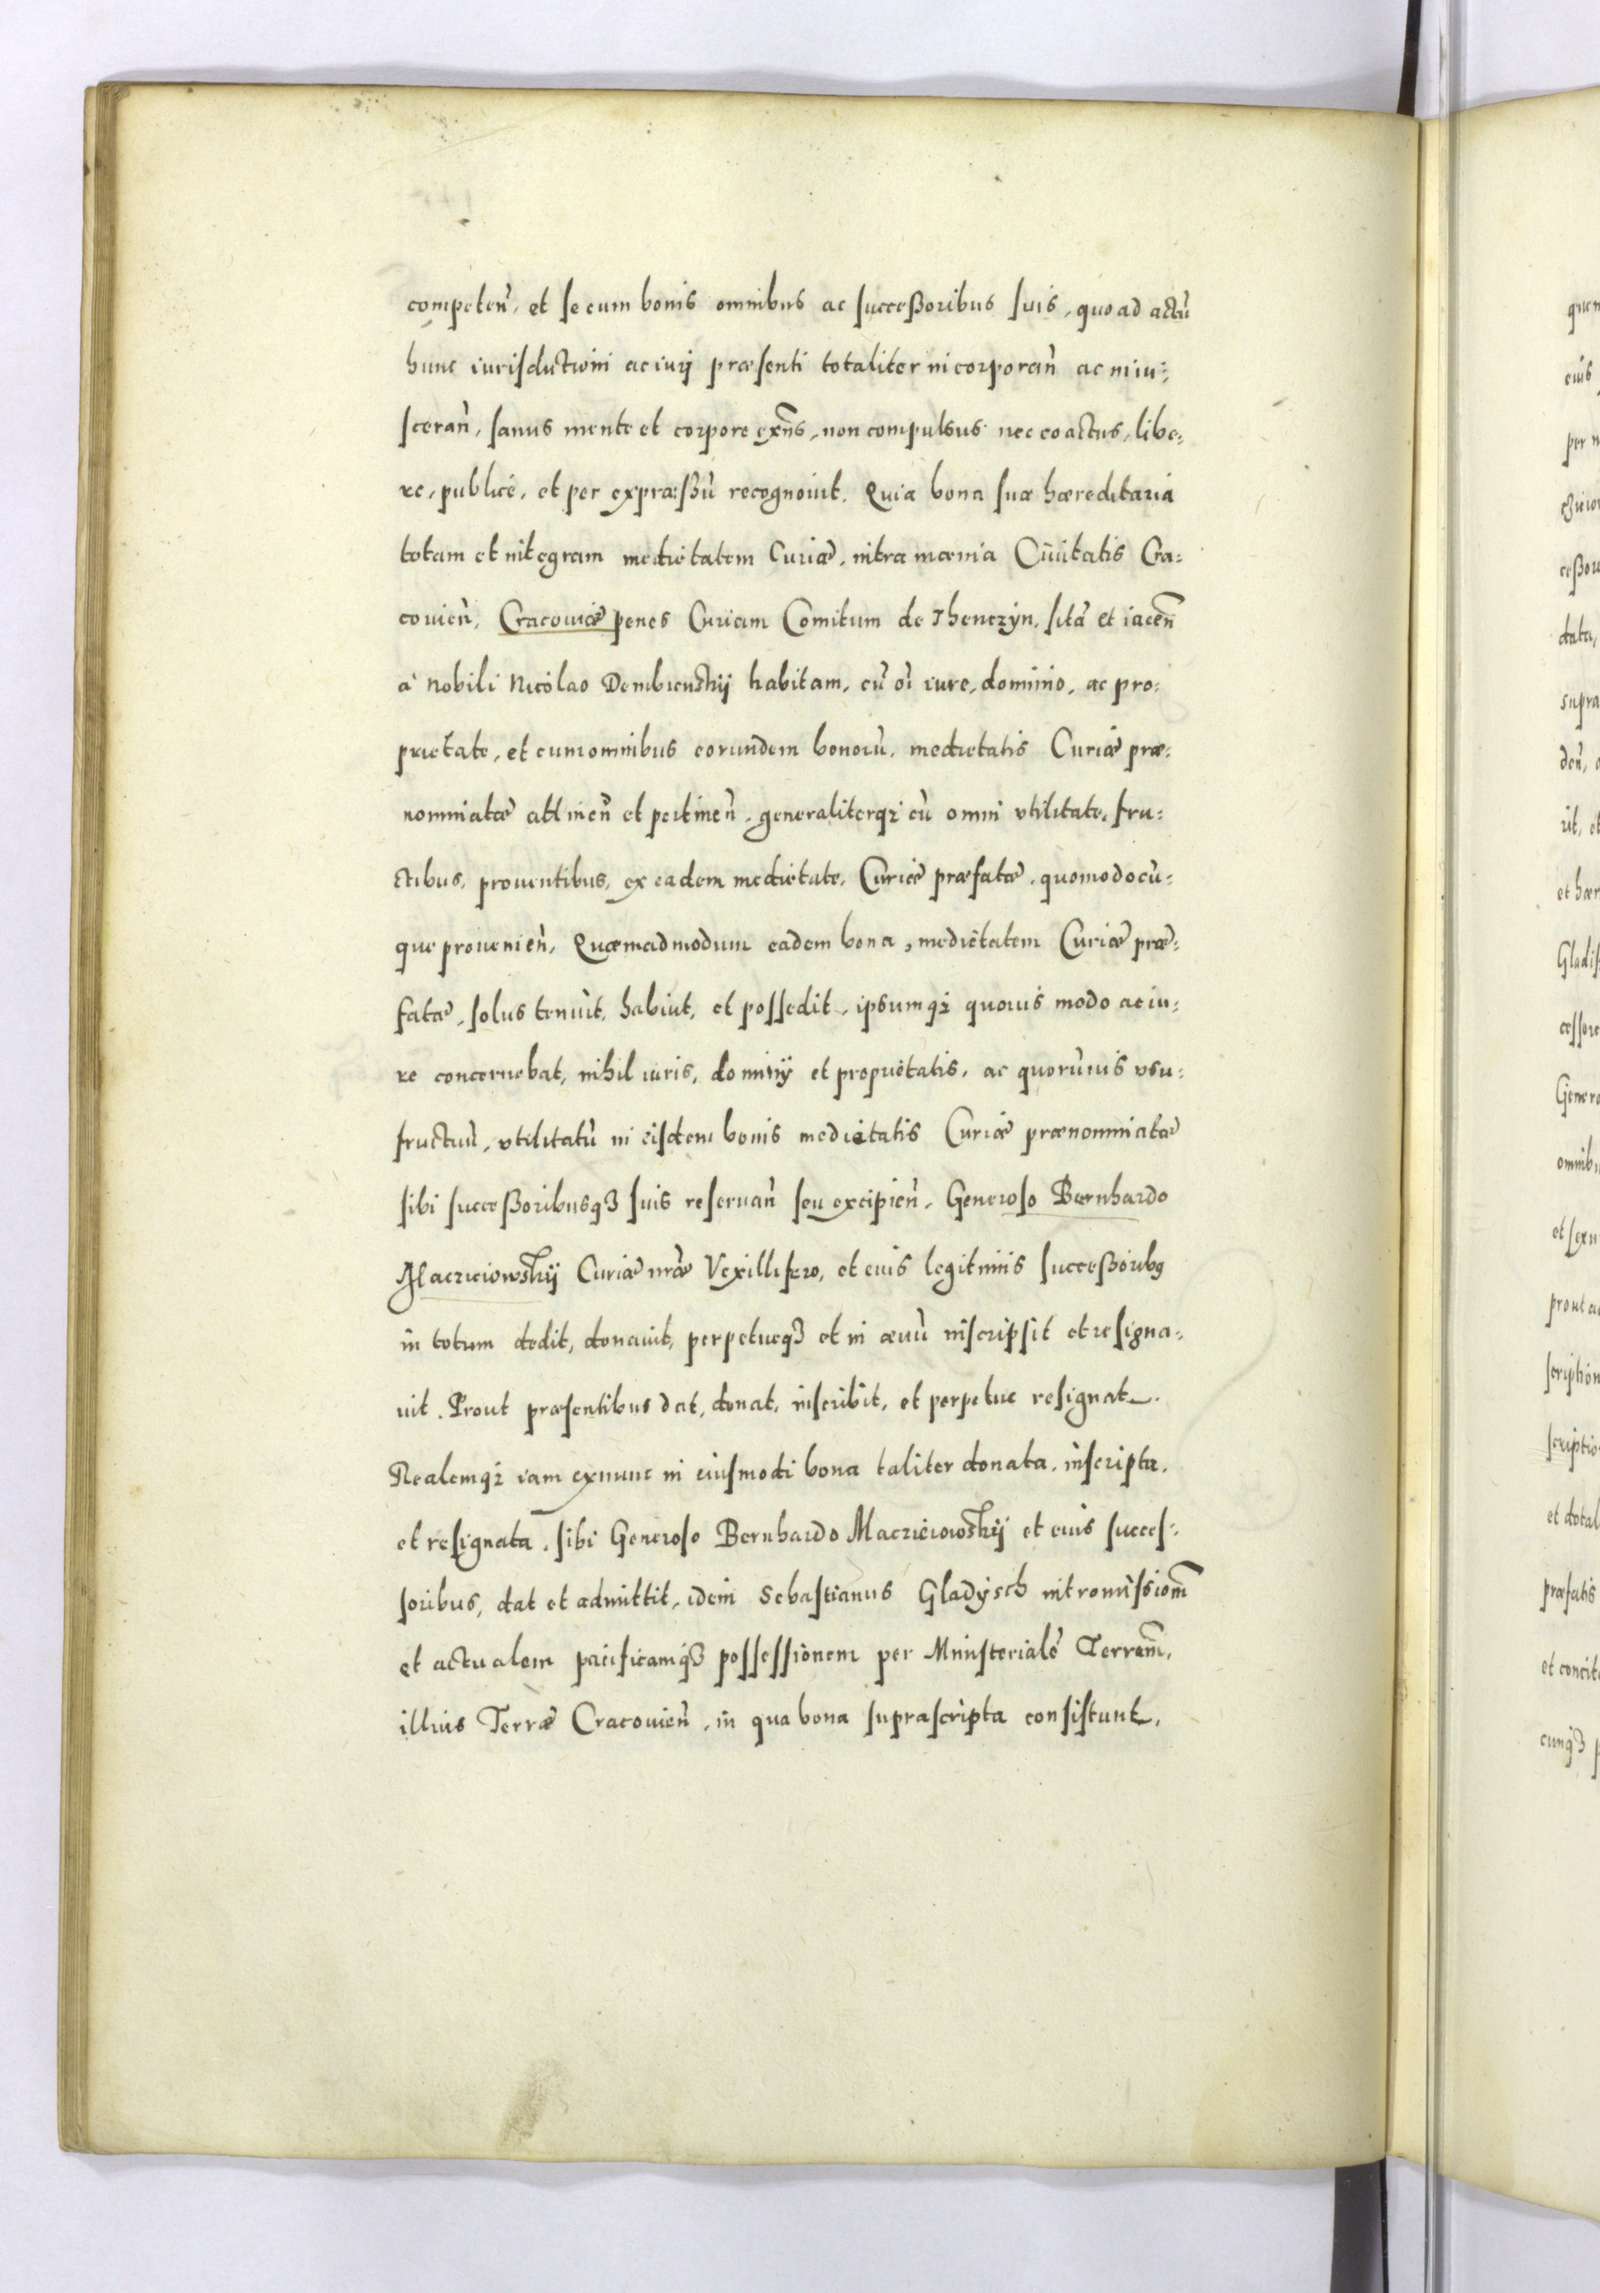 competeñ, et se cum bonis omnibus ac successoribus suis, quo ad actũ
hunc iurisdictioni ac iurj præsenti totaliter incorporañ ac inui⸗
scerañ, sanus mente et corpore exñs, non compulsus nec coactus, libe⸗
re, publicè, et per expræssũ recognouit. Quia bona sua hæreditaria
totam et integram medietatem Curiæ, intra mœnia Ciuitatis Cra⸗
couieñ, Cracouiæ penes Curiam Comitum de Thenczÿn, sitã et iaceñ
à Nobili Nicolao Dembienskÿ habitam, cũ oĩ iure, dominio, ac pro⸗
prietate, et cum omnibus eorundem bonorũ, medietatis Curiæ præ⸗
nominatæ attineñ et pertineñ, generaliterqȝ cũ omni vtilitate, fru⸗
ctibus, prouentibus, ex eadem medietate, Curiæ præfatæ, quomodocũ⸗
que prouenieñ, Quæmadmodum eadem bona, medietatem Curiæ præ⸗
fatæ, solus tenuit, habuit, et possedit, ipsumqȝ quouis modo ac iu⸗
re concernebat, nihil iuris, dominÿ et proprietatis, ac quorũuis vsu⸗
fructuũ, vtilitatũ in eisdem bonis medietatis Curiæ prænominatæ
sibi successoribusqȝ suis reseruañ seu excipieñ, Generoso Bernhardo
Maczieiowskÿ Curiæ nr̃æ Vexillifero, et eius legitimis successoribꝯ
in totum dedit, donauit, perpetueqȝ et in æuũ inscripsit et resigna⸗
uit. Prout præsentibus dat, donat, inscribit, et perpetue resignat.
Realemqȝ iam exnunc in eiusmodi bona taliter donata, inscripta,
et resignata, sibi Generoso Bernhardo Maczieiowskÿ et eius succes⸗
soribus, dat et admittit, idem Sebastianus Gladÿsch intromissioñem
et actualem pacificamqȝ possessionem per Ministerialẽ Terreñm,
illius Terræ Cracouieñ, in qua bona suprascripta consistunt,